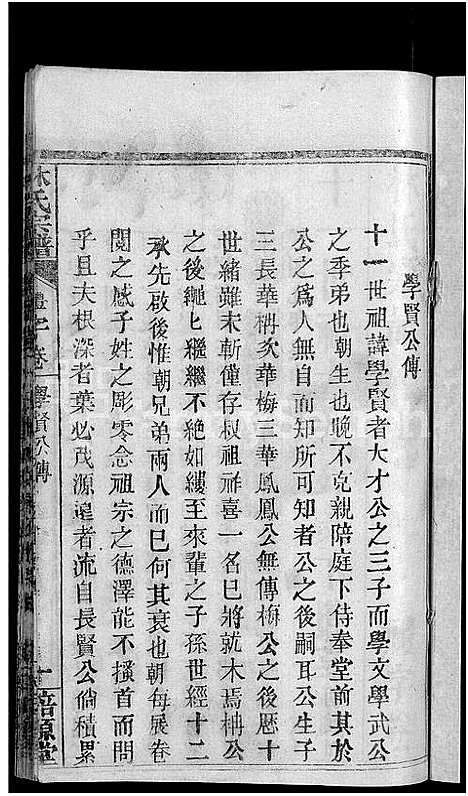 學賢公傳
十一世祖諱學賢者大才公之三子而學文學武公
之季弟也朝生也晚不克親陪庭下侍奉堂前其於
公之爲人無自而知所可知者公之後嗣耳公生子
三長華枏次華梅三華鳳鳳公無傳梅公之後歷十
世緒雖未斬僅存叔祖祥喜一名已將就木焉枏公
之後繩匕繼繼不絶如縷至來輩之子孫世經十二
承先啟後惟朝兄弟兩人而已何其衰也朝每展卷
閱之感子姓之彫零念祖宗之德澤能不搔首而問
乎且夫根深者葉必茂源遠者流自長賢公倘積累
林氏宗譜
卷
學賢公傳
培源堂